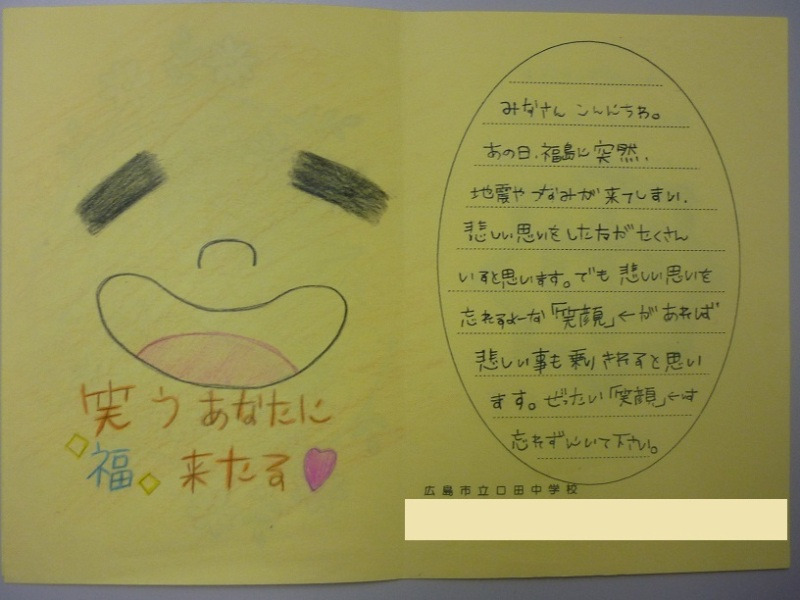 笑うあなたに
福来たる
みなさん こんにちわ。
あの日、福島に突然、
地震やつなみが来てしまい、
悲しい思いをした方がたくさん
いると思います。でも悲しい思いを
忘れるよーな「笑顔」←があれば
悲しい事も乗りきれると思い
ます。ぜったい「笑顔」←は
忘れずにいて下さい。
広島市立口田中学校